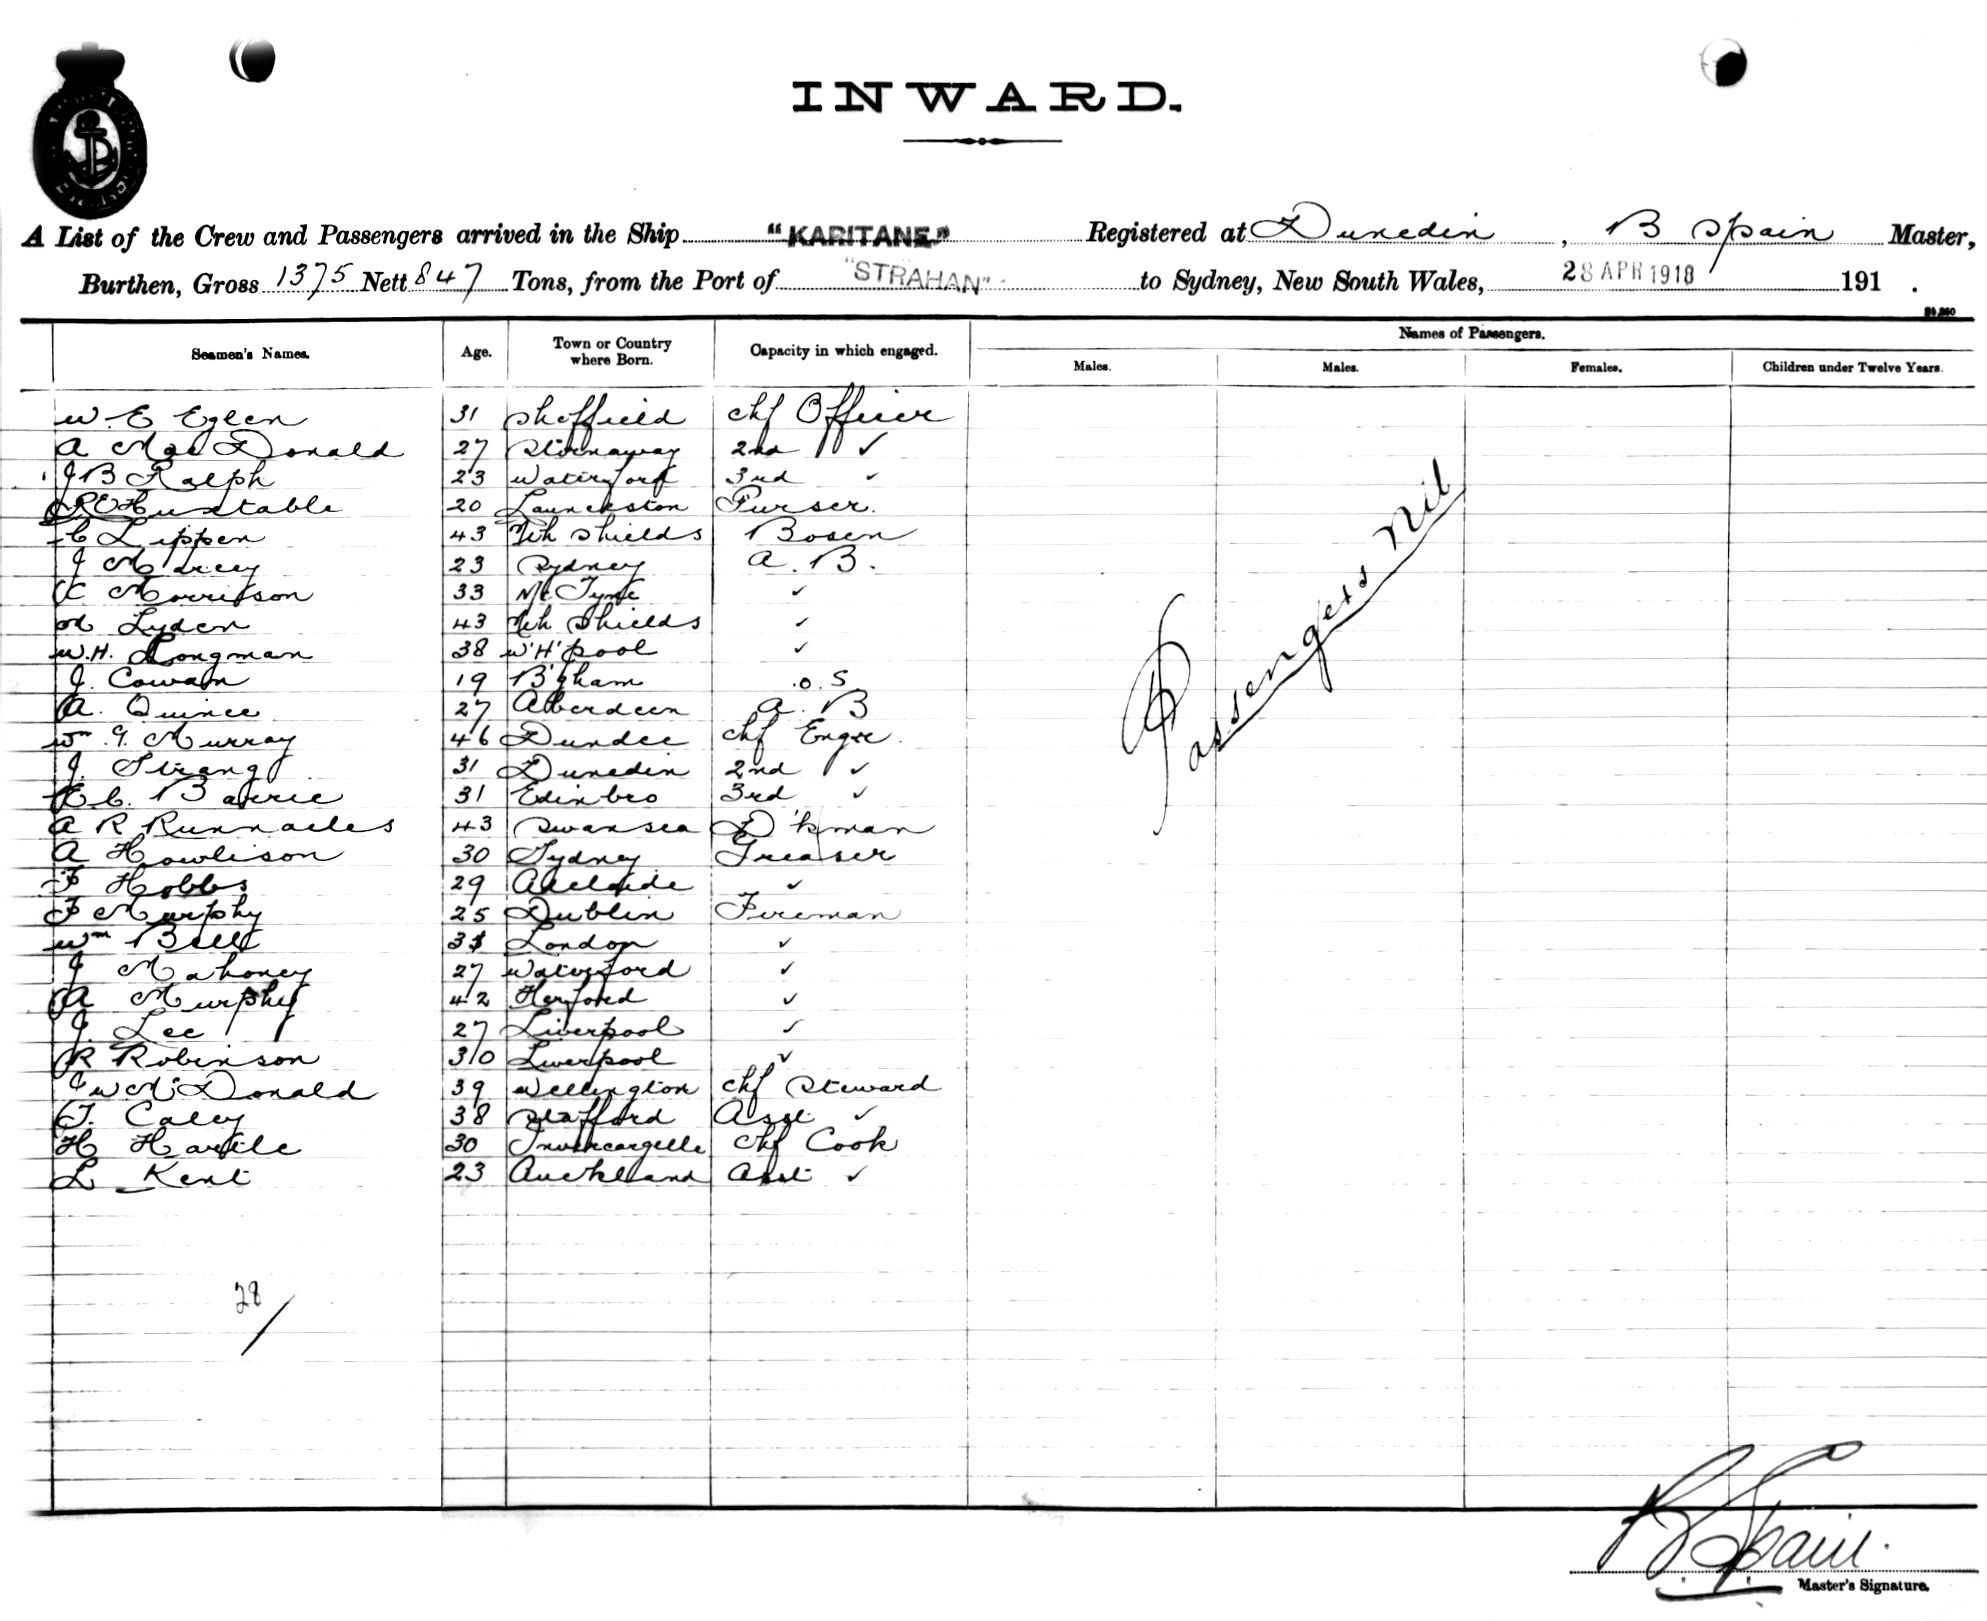 INWARD.
A List of the Crew and Passengers arrived in the Ship "KARITANE" Registered at Dunedin, B Spain Master,
Burthen, Gross 1375 Nett 847 Tons, from the Port of "STRAHAN" to Sydney, New South Wales, 28 APR 1918 191 .
Names of Passengers.
Seamen's Names. Age. Town or Country where Born. Capacity in which engaged. Males. Males. Females. Children under Twelve Years.
W. E Eglen 31 Sheffield chf Officer
A MacDonald 27 Stornaway 2nd ✓
J B Ralph 23 Waterford 3rd ✓
R E Huxtable 20 Launceston Purser.
C Lippen 43 Nth Shields Bosen
J Marcey 23 Sydney A. B.
K Morrison 33 N/c Tyne ✓
Lyden 43 Nth Shields ✓
W. H. Longman 38 W'H'pool ✓
J. Cowan 19 B'gham o. S
A. Quince 27 Aberdeen A. B
Wm. G. Murray 46 Dundee chf Engr.
J. Strang 31 Dunedin 2nd ✓
E C. Barrie 31 Edinbro 3rd ✓
A R Runnacles 43 Swansea D'kman
A Howlison 30 Sydney Greaser
F Hobbs 29 Adelaide ✓
F Murphy 25 Dublin Fireman
Wm Bell London ✓
J Mahoney 27 Waterford ✓
A Murphy 42 Herford ✓
J. Lee 27 Liverpool ✓
R Robinson 30 Liverpool ✓
J W McDonald 39 Wellington chf Steward
T. Caley 38 Stafford Asst ✓
H Hartle 30 Invercargille chf Cook
L Kent 23 Auckland Asst ✓
Passengers Nil
28/
B Spain.
Master's Signature.